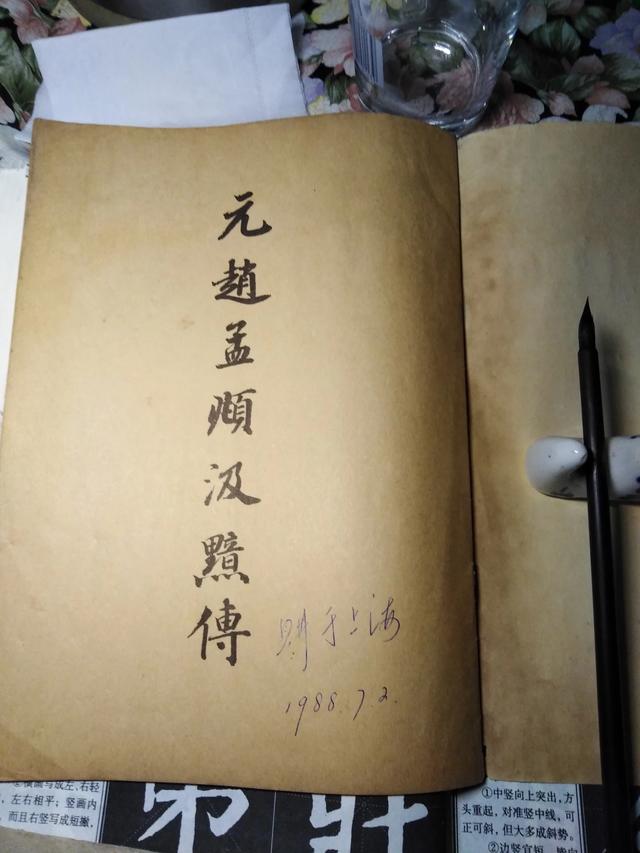 元趙孟頫汲黯傳
購于上海
1988.7.2.
②横画写成左、右轻
左右相平；竖画内
而且右竖写成短撇，
弟
壯
①中竖向上突出，方
头重起，对准竖中线，可
正可斜，但大多成斜势。
②边竖宜短，